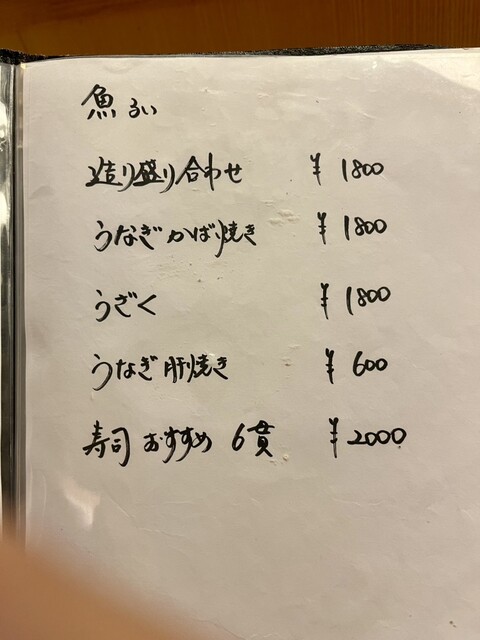 魚るい
造り盛り合わせ ¥1800
うなぎかば焼き ¥1800
うざく ¥1800
うなぎ肝焼き ¥600
寿司おすすめ 6貫 ¥2000